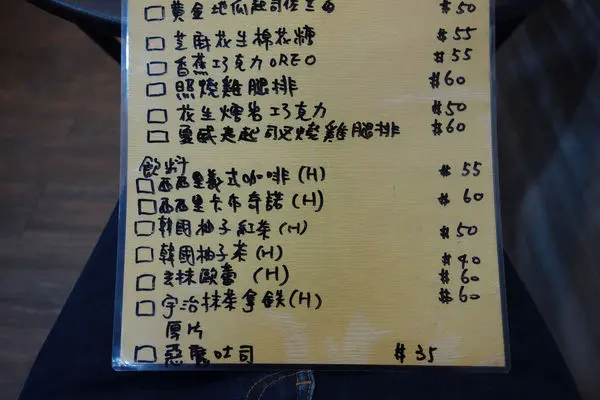 黃金地瓜起司 $50
芝麻花生棉花糖 $55
香蕉巧克力OREO $55
照燒雞腿排 $60
花生熔岩巧克力 $50
夏威夷起司照燒雞腿排 $60
飲料
西西里義式咖啡(H) $55
西西里卡布奇諾(H) $60
韓國柚子紅茶(H) $50
韓國柚子茶(H) $40
抹歐蕾(H) $60
宇治抹茶拿鐵(H) $60
厚片
惡魔吐司 $35